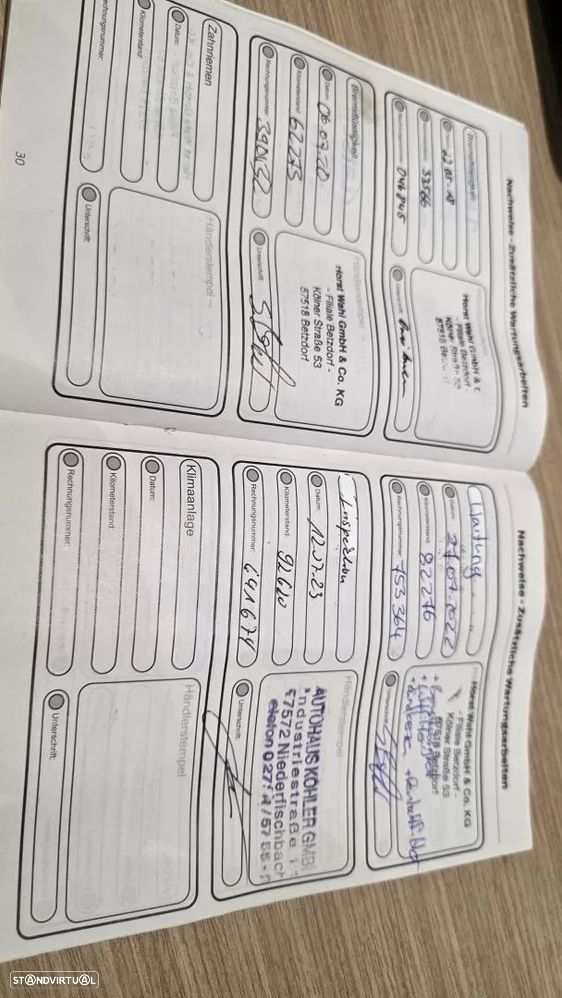 Nachweise - Zusätzliche Wartungsarbeiten
Bremsflüssigkeit
Datum:
Kilometerstand:
33566
Rechnungsnummer:
046845
Händlerstempel
Horst Wahl GmbH &
- Filiale Betzdorf -
Kölner Straße 53
57518
Unterschrift:
Bremsflüssigkeit
Datum:
06.07.20
Kilometerstand:
62275
Rechnungsnummer:
Händlerstempel
Horst Wahl GmbH & Co. KG
- Filiale Betzdorf -
Kölner Straße 53
57518 Betzdorf
Unterschrift:
Zahnriemen
Datum:
Kilometerstand:
Rechnungsnummer:
Händlerstempel
Unterschrift:
30
Nachweise - Zusätzliche Wartungsarbeiten
Wartung
Datum:
27.07.2022
Kilometerstand:
82276
Rechnungsnummer:
753364
Horst Wahl GmbH & Co. KG
- Filiale Betzdorf -
Kölner Straße 53
57518 Betzdorf
Unterschrift:
Inspektion
Datum:
12.07.23
Kilometerstand:
92620
Rechnungsnummer:
6491674
Händlerstempel
AUTOHAUS KÖHLER GMB
Industriestraße
57572 Niederfischbach
Unterschrift:
Klimaanlage
Datum:
Kilometerstand:
Rechnungsnummer:
Händlerstempel
Unterschrift:
STANDVIRTUAL